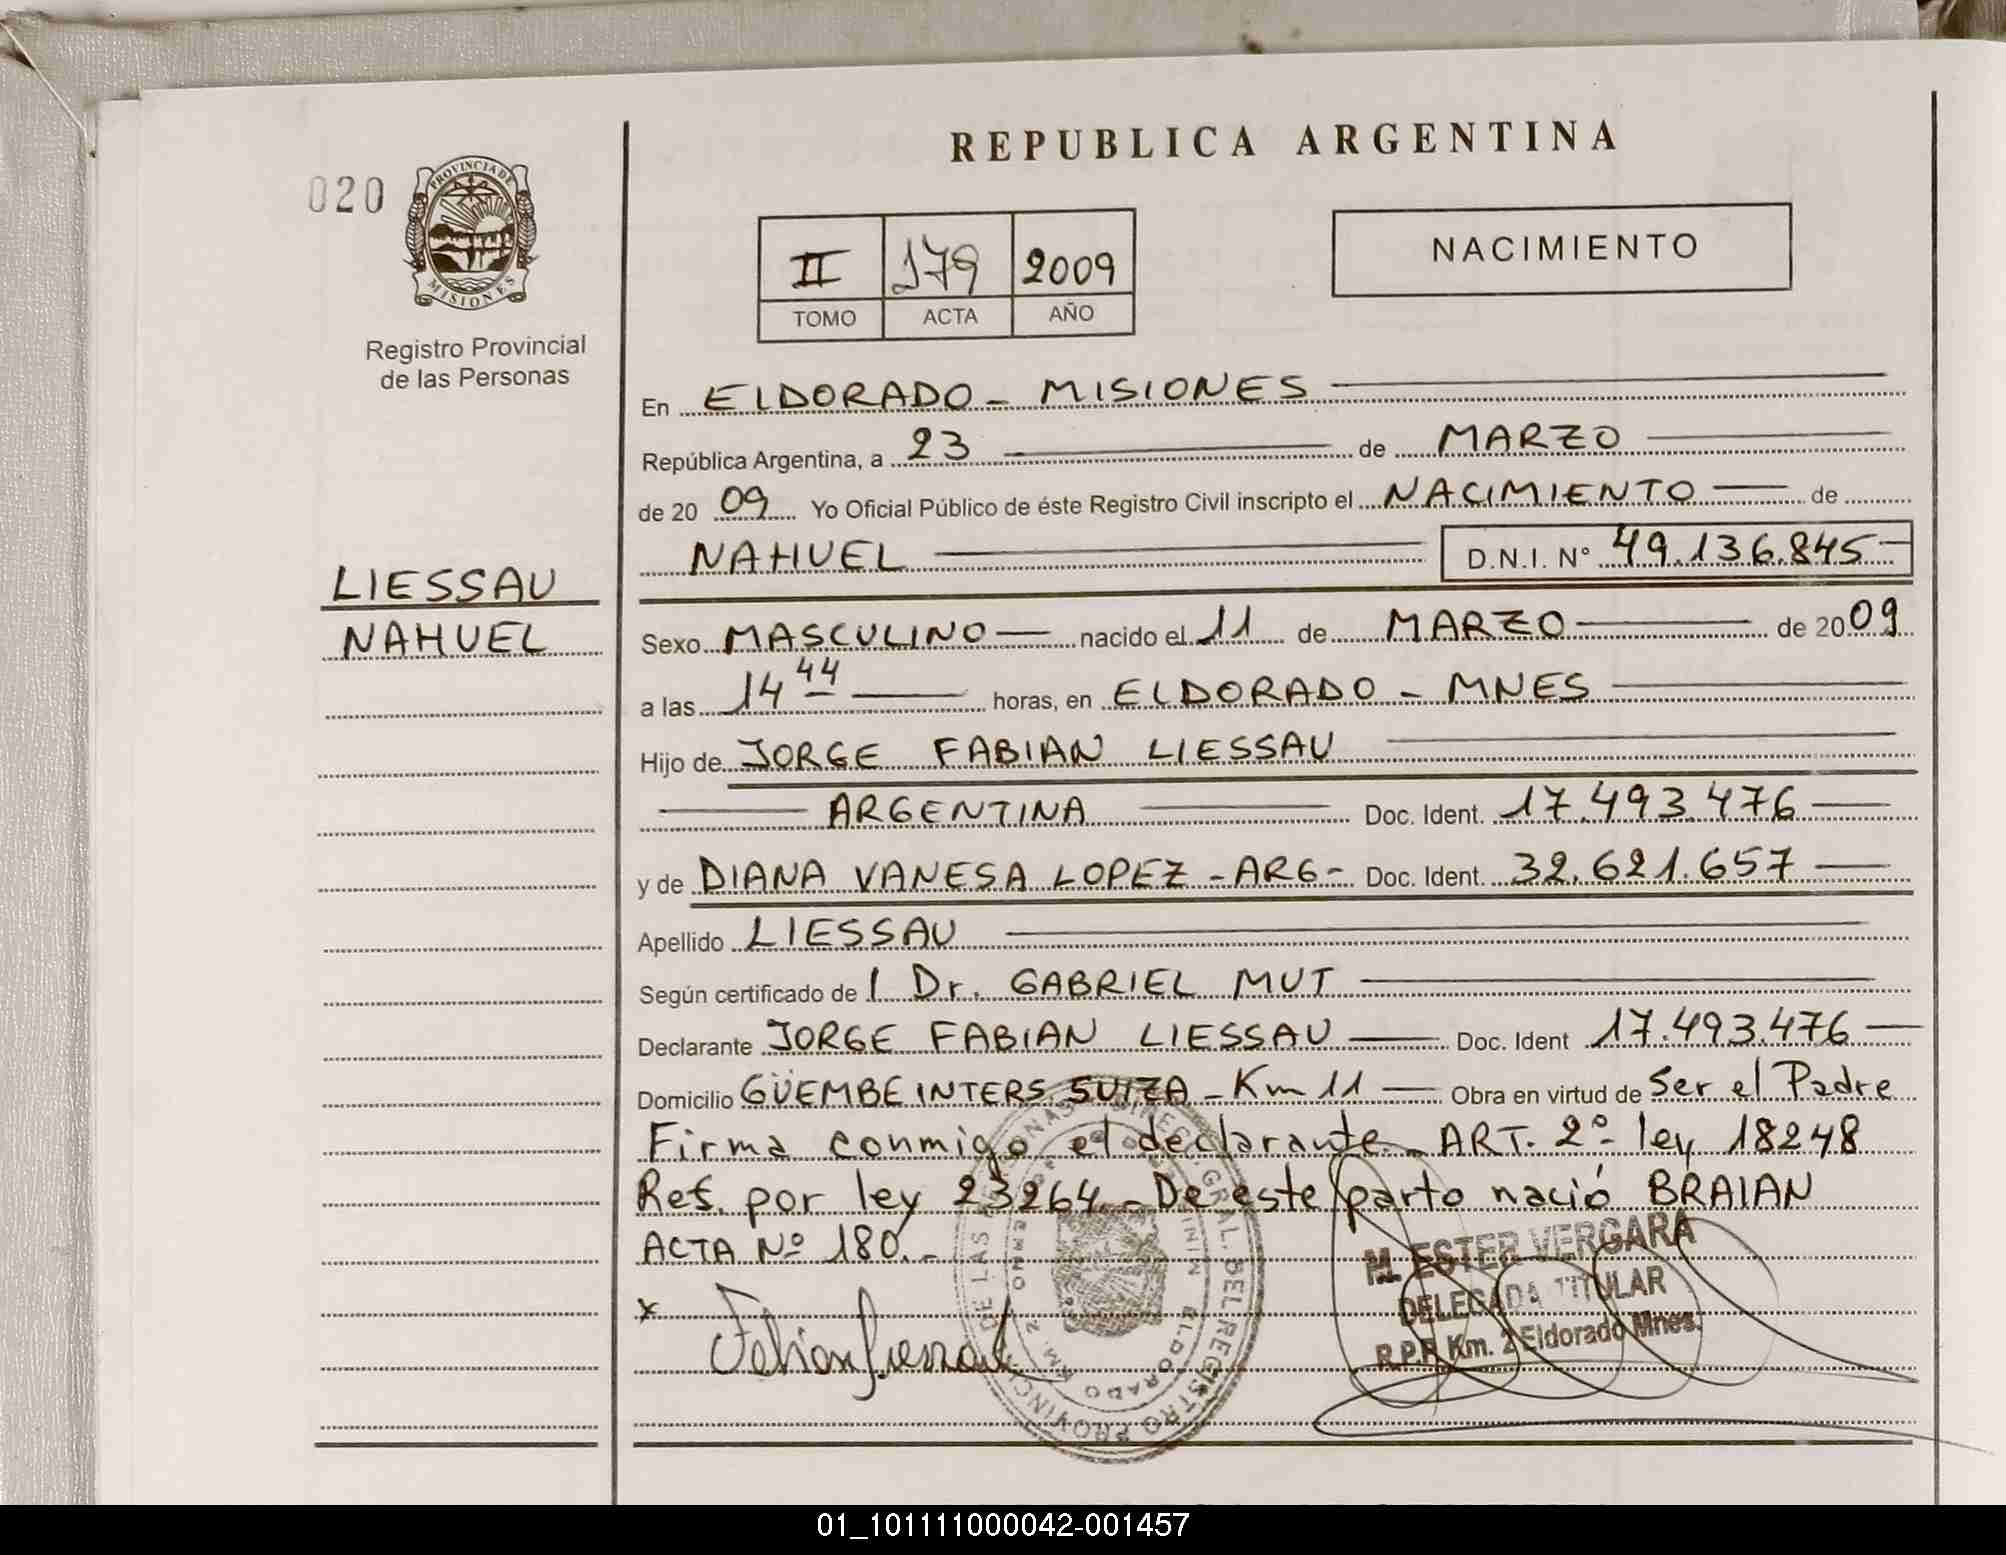 020
PROVINCIA DE
MISIONES
Registro Provincial
de las Personas
LIESSAU
NAHUEL
REPUBLICA ARGENTINA
II 179 2009
TOMO ACTA AÑO
NACIMIENTO
En ELDORADO - MISIONES
República Argentina, a 23 de MARZO
de 20 09 Yo Oficial Público de éste Registro Civil inscripto el NACIMIENTO de
NAHUEL D.N.I. N° 49.136.845
Sexo MASCULINO nacido el 11 de MARZO de 2009
a las 14 44 horas, en ELDORADO - MNES
Hijo de JORGE FABIAN LIESSAU
ARGENTINA Doc. Ident. 17.493.476
y de DIANA VANESA LOPEZ - ARG - Doc. Ident. 32.621.657
Apellido LIESSAU
Según certificado de l Dr. GABRIEL MUT
Declarante JORGE FABIAN LIESSAU Doc. Ident 17.493.476
Domicilio GÜEMBE INTERS. SUIZA - Km 11 Obra en virtud de Ser el Padre
Firma conmigo el declarante. ART. 2º ley 18248
Ref. por ley 23264. - De este parto nació BRAIAN
ACTA Nº 180. -
x
M. ESTER VERGARA
DELEGADA TITULAR
R.P.P. Km. 2 Eldorado Mnes.
DIREC. GRAL. DEL REGISTRO PROVINCIAL DE LAS PERSONAS
ELDORADO
01_101111000042-001457